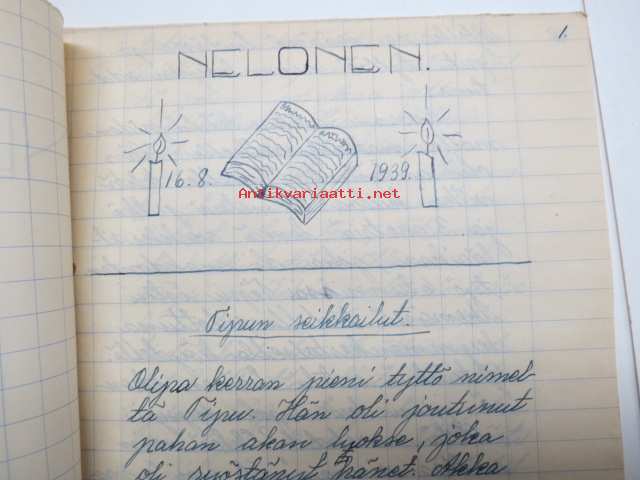 1.
NELONEN.
16.8. 1939.
Antikvariaatti.net
Tipun seikkailut.
Olipa kerran pieni tyttö nimel-
tä Tipu. Hän oli joutunut
pahan akan luokse, joka
oli ryöstänyt hänet. Akka